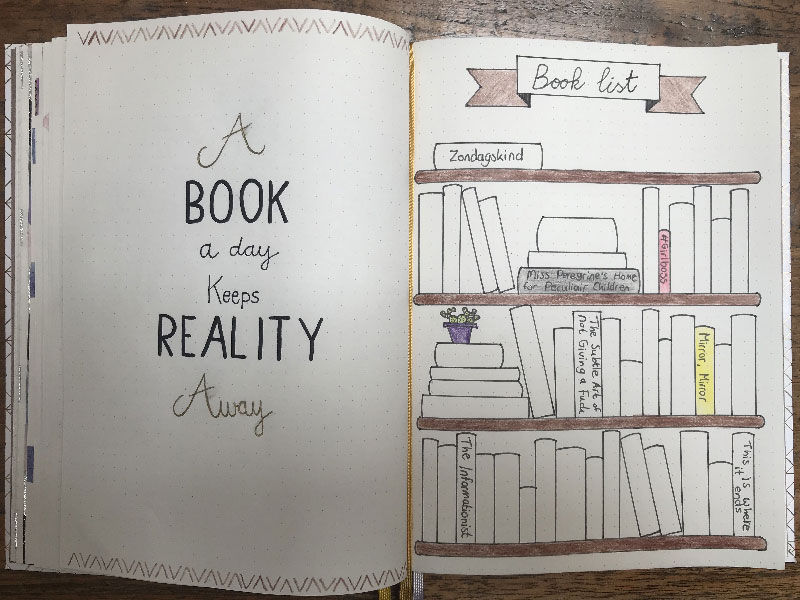 A
BOOK
a day
Keeps
REALITY
Away
Book list
Zondagskind
#Girlboss
Miss Peregrine's Home
for Peculiair Children
The Subtle Art of
not Giving a Fuck
Mirror, Mirror
The Informationist
This is where
it ends